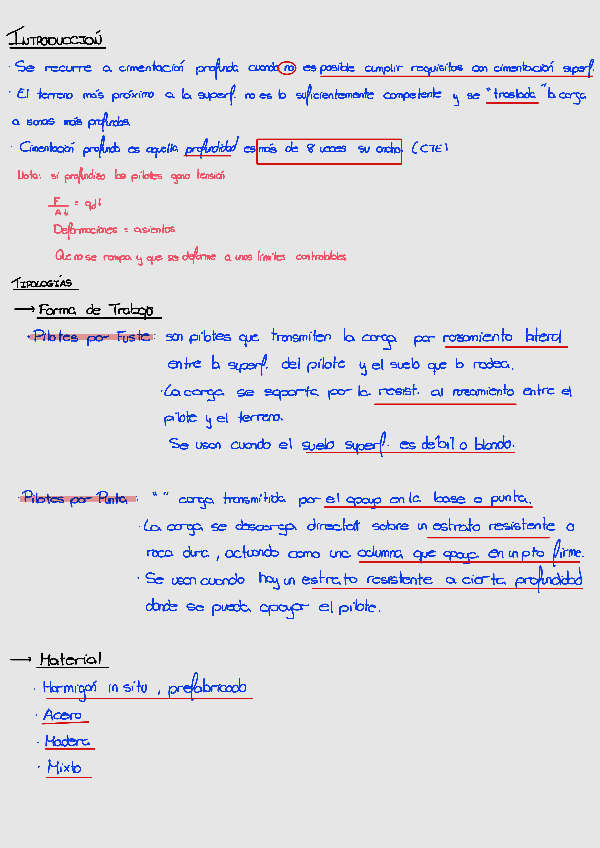 INTRODUCCIÓN
· Se recurre a cimentación profunda cuando no es posible cumplir requisitos con cimentación superf.
· El terreno más próximo a la superf. no es lo suficientemente competente y se "traslada" la carga
a zonas más profundas.
· Cimentación profunda es aquella profundidad es más de 8 veces su ancho. (CTE)
Nota: si profundizo los pilotes gano tensión
F/A↓ = qd↓
Deformaciones = asientos
Que no se rompa y que se deforme a unos límites controlables
TIPOLOGÍAS
→ Forma de Trabajo
· Pilotes por Fuste: son pilotes que transmiten la carga por rozamiento lateral
entre la superf. del pilote y el suelo que lo rodea.
· La carga se soporta por la resist. al rozamiento entre el
pilote y el terreno.
Se usan cuando el suelo superf. es débil o blando.
· Pilotes por Punta: " " carga transmitida por el apoyo en la base o punta.
· La carga se descarga directa// sobre un estrato resistente o
roca dura, actuando como una columna que apoya en un pto firme.
· Se usan cuando hay un estrato resistente a cierta profundidad
donde se pueda apoyar el pilote.
→ Material
· Hormigón in situ, prefabricado
· Acero
· Madera
· Mixto